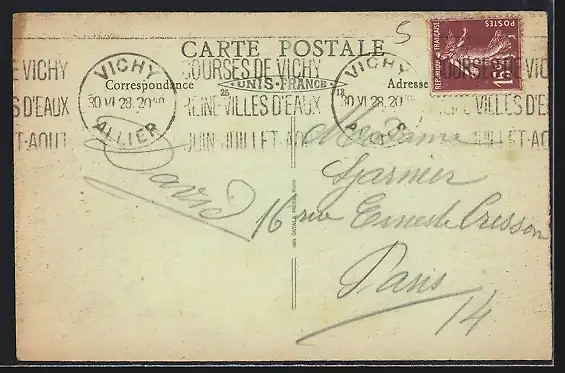 5
CARTE POSTALE
Correspondance
Adresse
UNIS-FRANCE
25
VICHY
30 VI 28. 20
ALLIER
COURSES DE VICHY
REINE-VILLES D'EAUX
JUIN-JUILLET-AOUT
VICHY
30 VI 28. 20
COURSES DE VICHY
VILLES D'EAUX
JUILLET-AOUT
REPUBLIQUE FRANÇAISE
POSTES
15c
David
Madame
16 rue Ernest Cresson
Paris
14